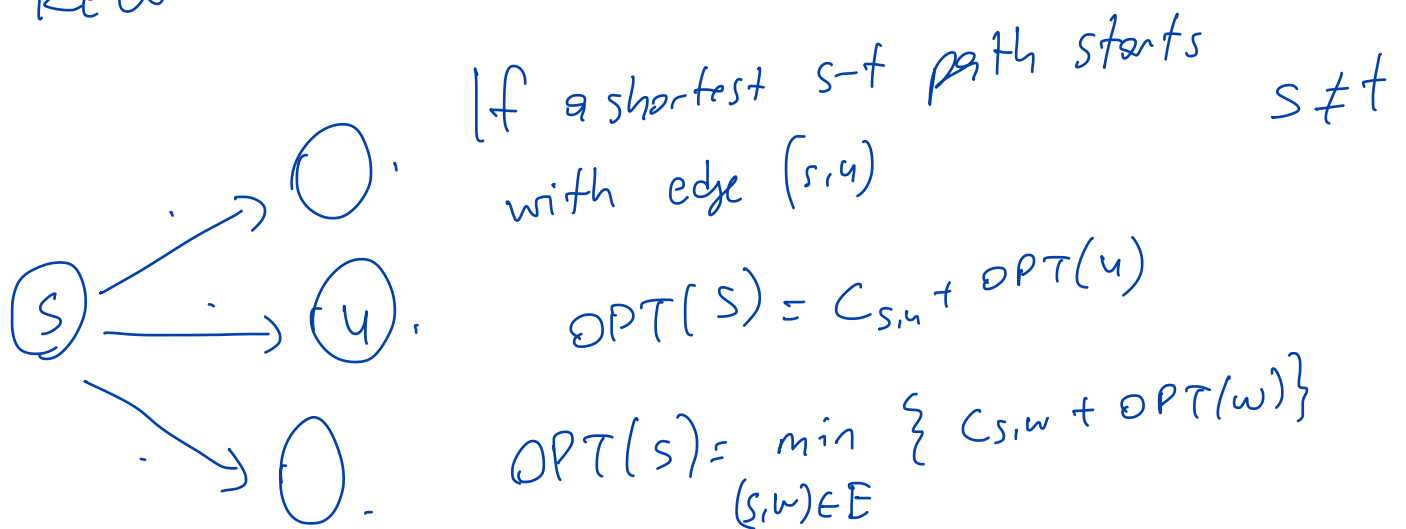 If a shortest s-t path starts
s ≠ t
with edge (s,u)
s
u
OPT(s) = C_{s,u} + OPT(u)
OPT(s) = min { C_{s,w} + OPT(w)}
(s,w)∈E